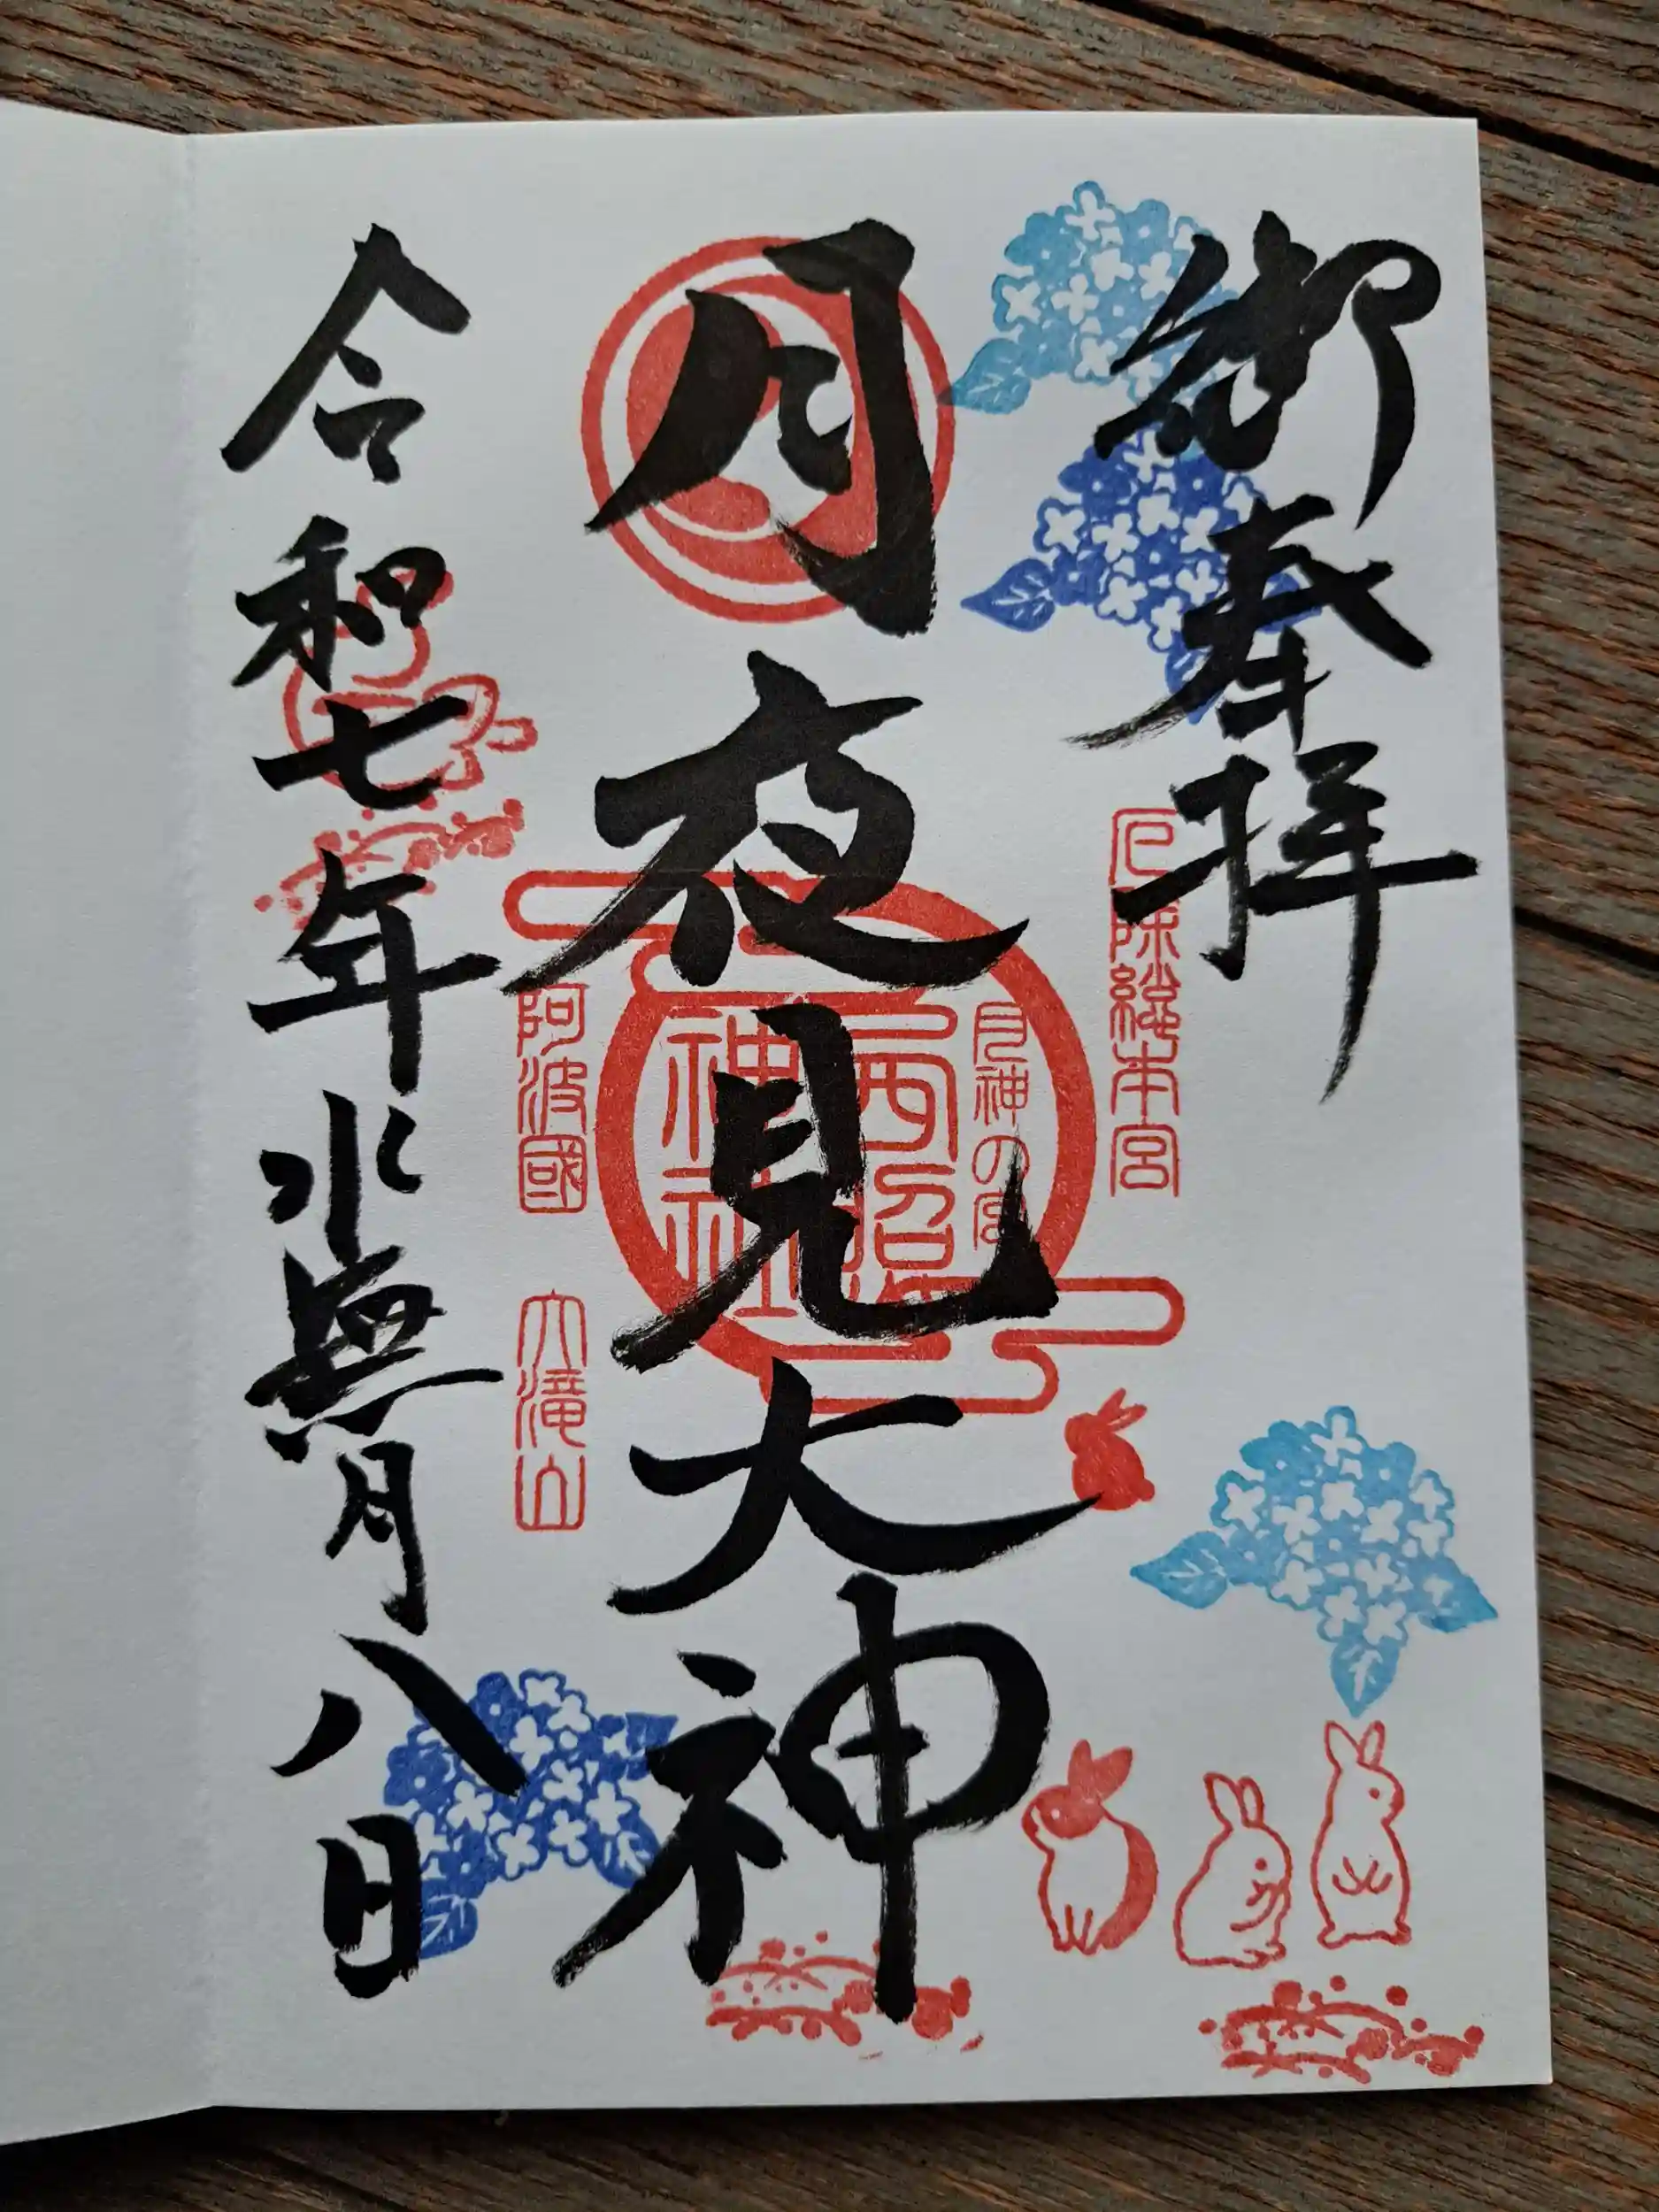 御奉拝
厄除総本宮
月夜見大神
月神の宮
西照
神社
阿波國
大滝山
令和七年水無月八日